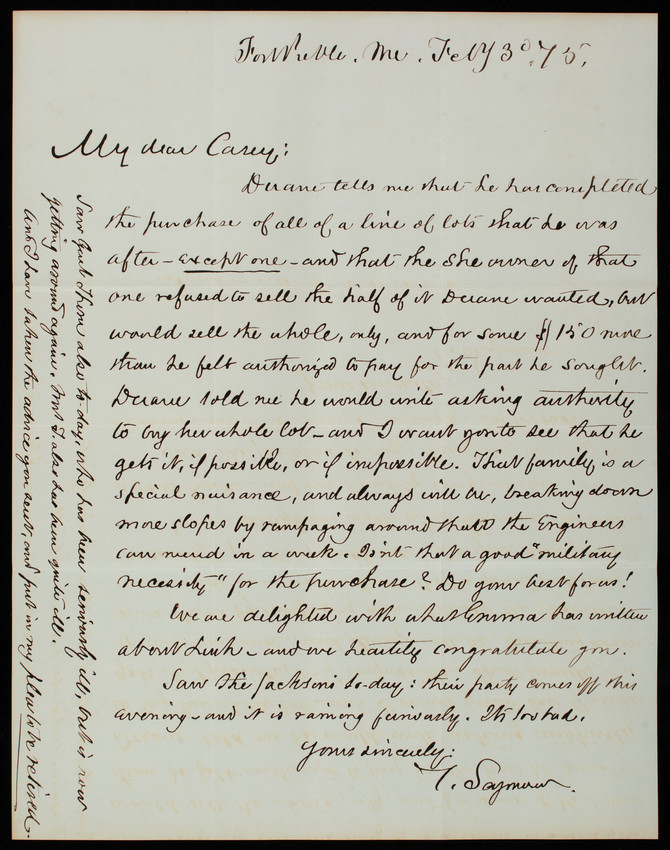 Fort Preble. Me. Feb'y 3d, 75,
My dear Casey;
Duane tells me that he has completed
the purchase of all of a line of lots that he was
after - except one - and that the she owner of that
one refused to sell the half of it Duane wanted, but
would sell the whole, only, and for some $150 more
than he felt authorized to pay for the part he sought.
Duane told me he would write asking authority
to buy her whole lot - and I want you to see that he
gets it, if possible, or if impossible. That family is a
special nuisance, and always will be, breaking down
more slopes by rampaging around than the Engineers
can mend in a week. Isn't that a good "military
necessity" for the purchase? Do your best for us!
We are delighted with what Emma has written
about Link - and we heartily congratulate you.
Saw the Jacksons to-day: their party comes off this
evening - and it is raining furiously. It's too bad.
Yours sincerely:
T. Seymour.
Saw there also to day, who has been seriously ill, but is now
getting around again. Mrs J. also has been quite ill.
And I have taken the advice you sent, and put in my plea to be retired.